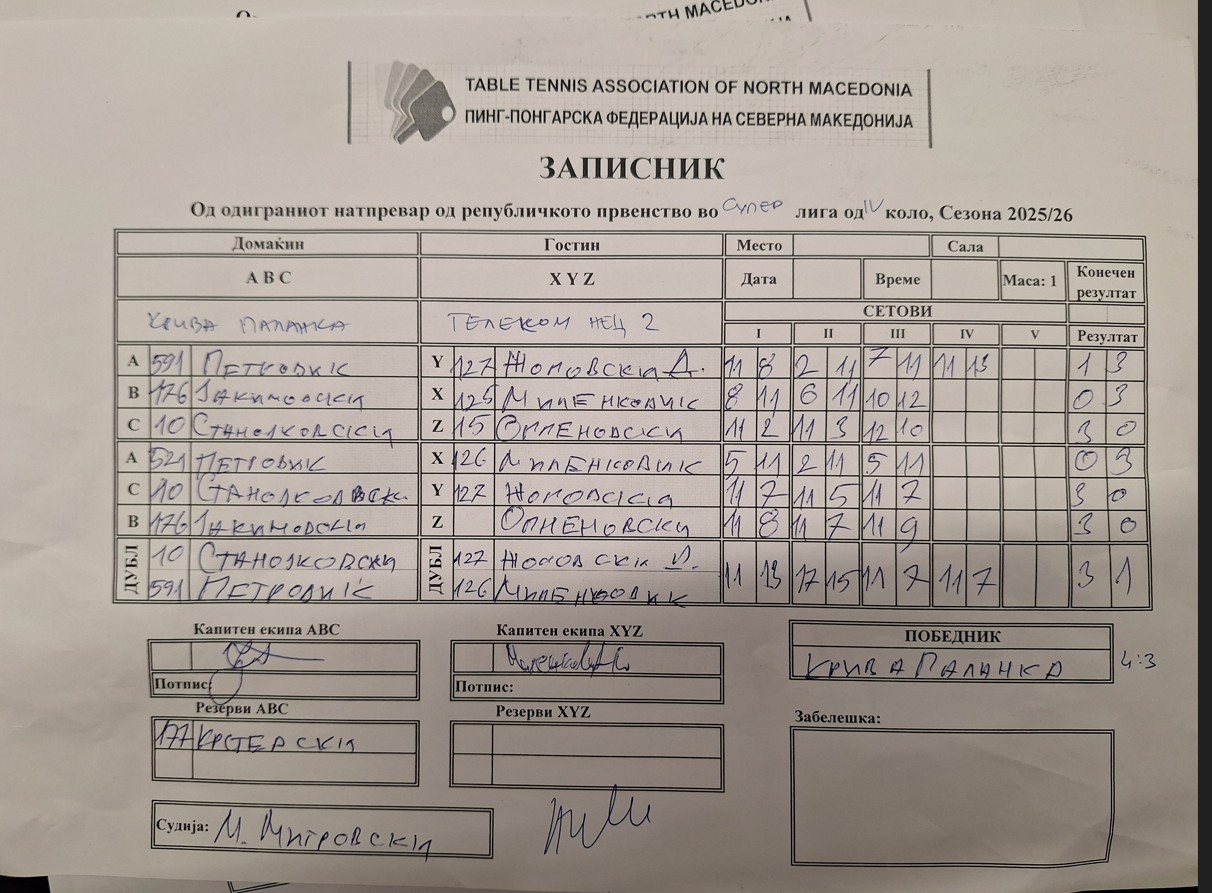 TH MACEDON
TABLE TENNIS ASSOCIATION OF NORTH MACEDONIA
ПИНГ-ПОНГАРСКА ФЕДЕРАЦИЈА НА СЕВЕРНА МАКЕДОНИЈА
ЗАПИСНИК
Од одиграниот натпревар од републичкото првенство во СУПЕР лига од IV коло, Сезона 2025/26
Домаќин Гостин Место Сала
A B C X Y Z Дата Време Маса: 1 Конечен резултат
КРИВА ПАЛАНКА ТЕЛЕКОМ НЕЦ 2 СЕТОВИ
I II III IV V Резултат
A 591 ПЕТРОВИЌ Y 127 ЖОГОВСКИ Д. 11 8 2 11 7 11 11 13 1 3
B 176 ЈАКИМОВСКИ X 126 МИЛЕНКОВИЌ 8 11 6 11 10 12 0 3
C 10 СТАНОЈКОВСКИ Z 15 ОГНЕНОВСКИ 11 2 11 3 12 10 3 0
A 521 ПЕТРОВИЌ X 126 МИЛЕНКОВИК 5 11 2 11 5 11 0 3
C 10 СТАНОЈКОВСКИ Y 127 ЖОГОВСКИ 11 7 11 5 11 7 3 0
B 176 ЈАКИМОВСКИ Z ОГНЕНОВСКИ 11 8 11 7 11 9 3 0
ДУБЛ 10 СТАНОЈКОВСКИ ДУБЛ 127 ЖОГОВСКИ Д. 11 13 17 15 11 7 11 7 3 1
591 ПЕТРОВИЌ 126 МИЛЕНКОВИК
Капитен екипа ABC Капитен екипа XYZ ПОБЕДНИК
КРИВА ПАЛАНКА 4:3
Потпис: Потпис:
Резерви ABC Резерви XYZ Забелешка:
177 КРСТЕВСКИ
Судија: М. МИТРОВСКИ